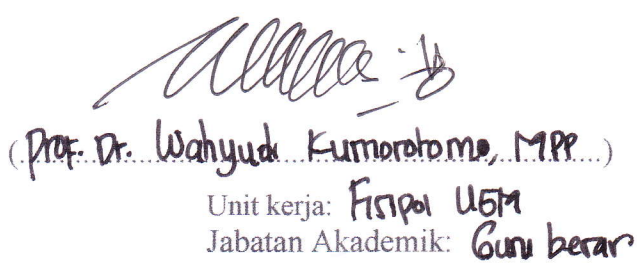 (Prof. Dr. Wahyudi Kumorotomo, MPP)
Unit kerja: Fisipol UGM
Jabatan Akademik: Guru besar